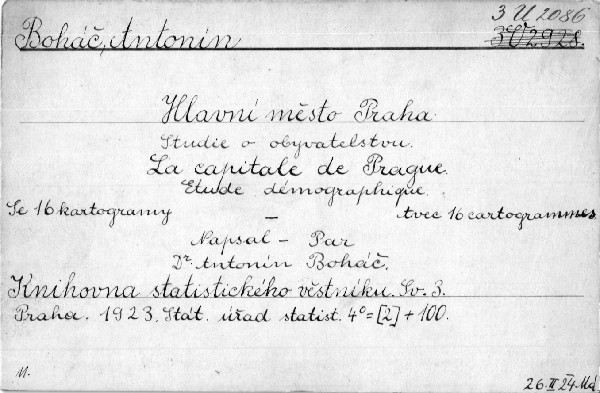 3 U 2086
Boháč, Antonín
Hlavní město Praha.
Studie o obyvatelstvu.
La capitale de Prague.
Etude démographique.
Se 16 kartogramy — Avec 16 cartogrammes.
Napsal – Par
Dr. Antonín Boháč.
Knihovna statistického věstníku. Sv. 3.
Praha. 1923. Stát. úřad statist. 4° = [2] + 100.
M. 26. II 24. Má